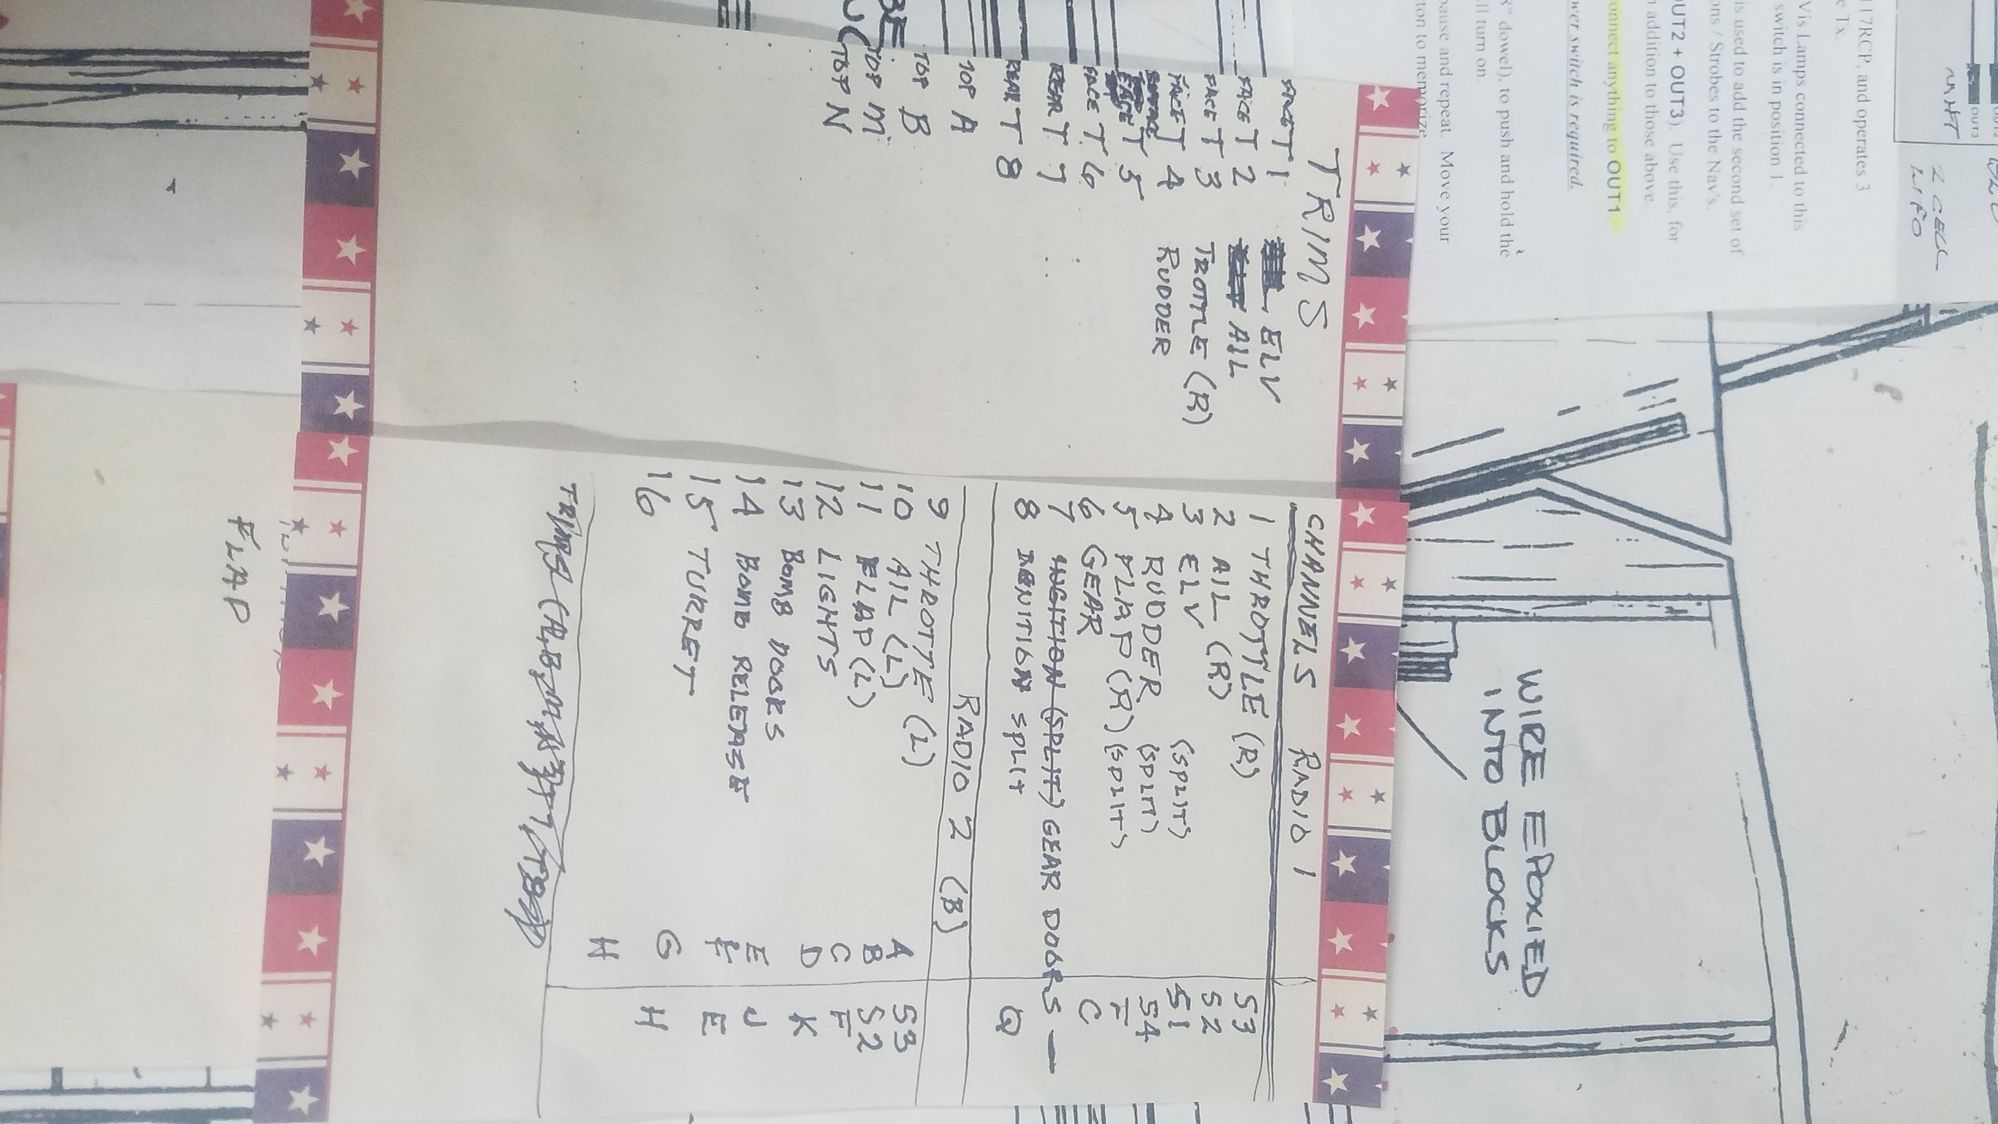 TRIMS
FACE T 1 ELV
FACE T 2 AIL
FACE T 3 TROTTLE (R)
FACE T 4 RUDDER
T 5
FACE T 6
REAR T 7
REAR T 8
TOP A
TOP B
TOP M
TOP N
CHANNELS RADIO 1
1 THROTTLE (R) S3
2 AIL (R) S2
3 ELV (SPLIT) S1
4 RUDDER (SPLIT) S4
5 FLAP (R) (SPLIT) F
6 GEAR C
7 IGNITION (SPLIT) GEAR DOORS —
8 IGNITION SPLIT Q
RADIO 2 (B)
9 THROTTE (L) A S3
10 AIL (L) B S2
11 FLAP (L) C F
12 LIGHTS D K
13 BOMB DOORS E J
14 BOMB RELEASE F E
15 TURRET G H
16 H
FLAP
WIRE EPOXIED
INTO BLOCKS
7RCP, and operates 3
e Tx.
Vis Lamps connected to this
switch is in position 1.
is used to add the second set of
ons / Strobes to the Nav's.
OUT2 + OUT3). Use this, for
addition to those above.
onnect anything to OUT1.
wer switch is required.
8" dowel), to push and hold the
ll turn on.
pause and repeat. Move your
ton to memorize
OUT3
2 CELL
LIFO